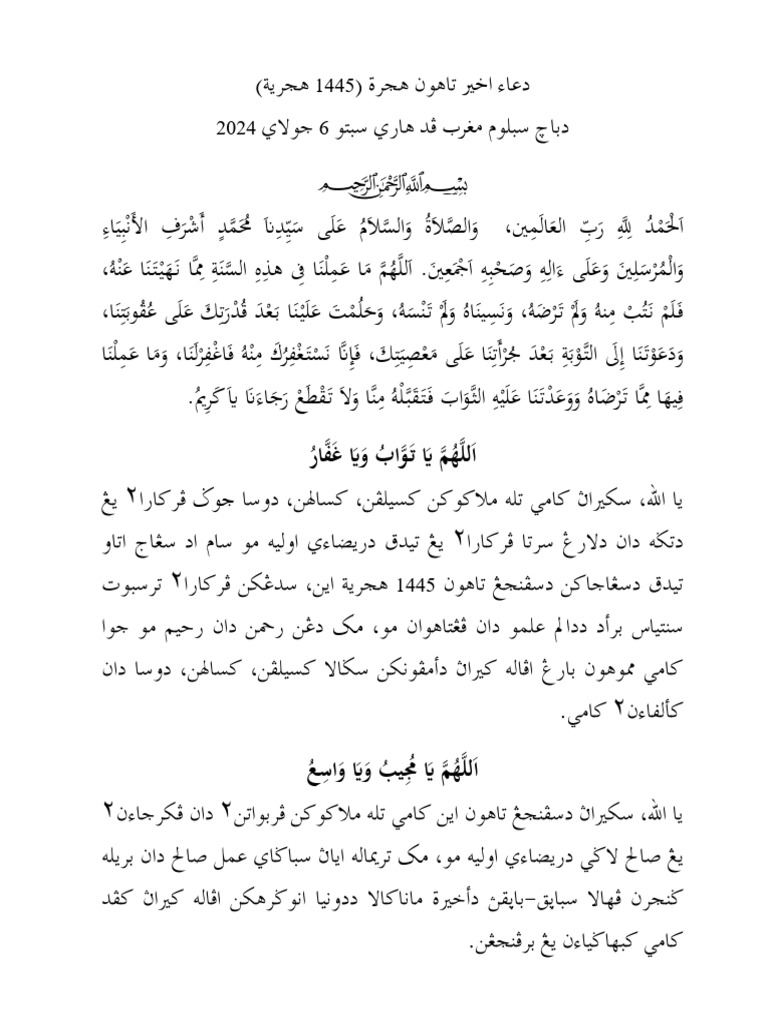 دعاء اخير تاهون هجرة (1445 هجرية)
دباچ سبلوم مغرب ڤد هاري سبتو 6 جولاي 2024
بِسْمِ اللَّهِ الرَّحْمَٰنِ الرَّحِيمِ
اَلْحَمْدُ لِلَّهِ رَبِّ العَالَمِين، وَالصَّلاَةُ وَالسَّلاَمُ عَلَى سَيِّدِناَ مُحَمَّدٍ أَشْرَفِ الأَنْبِيَاءِ
وَالْمُرْسَلِينَ وَعَلَى ءَالِهِ وَصَحْبِهِ اَجْمَعِينَ. اَللَّهُمَّ مَا عَمِلْنَا فِى هذِهِ السَّنَةِ مِمَّا نَهَيْتَنَا عَنْهُ،
فَلَمْ نَتُبْ مِنهُ وَلَمْ تَرْضَهُ، وَنَسِينَاهُ وَلَمْ تَنْسَهُ، وَحَلُمْتَ عَلَيْنَا بَعْدَ قُدْرَتِكَ عَلَى عُقُوبَتِنَا،
وَدَعَوْتَنَا إِلَى التَّوْبَةِ بَعْدَ جُرْأَتِنَا عَلَى مَعْصِيَتِكَ، فَإِنَّا نَسْتَغْفِرُكَ مِنْهُ فَاغْفِرْلَنَا، وَمَا عَمِلْنَا
فِيهَا مِمَّا تَرْضَاهُ وَوَعَدْتَنَا عَلَيْهِ الثَّوَابَ فَتَقَبَّلْهُ مِنَّا وَلاَ تَقْطَعْ رَجَاءَنَا ياَكَرِيمُ.
اَللَّهُمَّ يَا تَوَّابُ وَيَا غَفَّارُ
يا الله، سكيراڽ كامي تله ملاكوكن كسيلڤن، كسالهن، دوسا جوݢ ڤركارا٢ يڠ
دتݢه دان دلارڠ سرتا ڤركارا٢ يڠ تيدق دريضاءي اوليه مو سام اد سڠاج اتاو
تيدق دسڠاجاكن دسڤنجڠ تاهون 1445 هجرية اين، سدڠكن ڤركارا٢ ترسبوت
سنتياس برأد ددالم علمو دان ڤڠتاهوان مو، مک دڠن رحمن دان رحيم مو جوا
كامي مموهون بارڠ اڤاله كيراڽ دأمڤونكن سݢالا كسيلڤن، كسالهن، دوسا دان
كألفاءن٢ كامي.
اَللَّهُمَّ يَا مُجِيبُ وَيَا وَاسِعُ
يا الله، سكيراڽ دسڤنجڠ تاهون اين كامي تله ملاكوكن ڤربواتن٢ دان ڤكرجاءن٢
يڠ صالح لاݢي دريضاءي اوليه مو، مک تريماله اياڽ سباݢاي عمل صالح دان بريله
ݢنجرن ڤهالا سباڽق-باڽقڽ دأخيرة ماناكالا ددونيا انوݢرهكن اڤاله كيراڽ كڤد
كامي كبهاݢياءن يڠ برڤنجڠن.